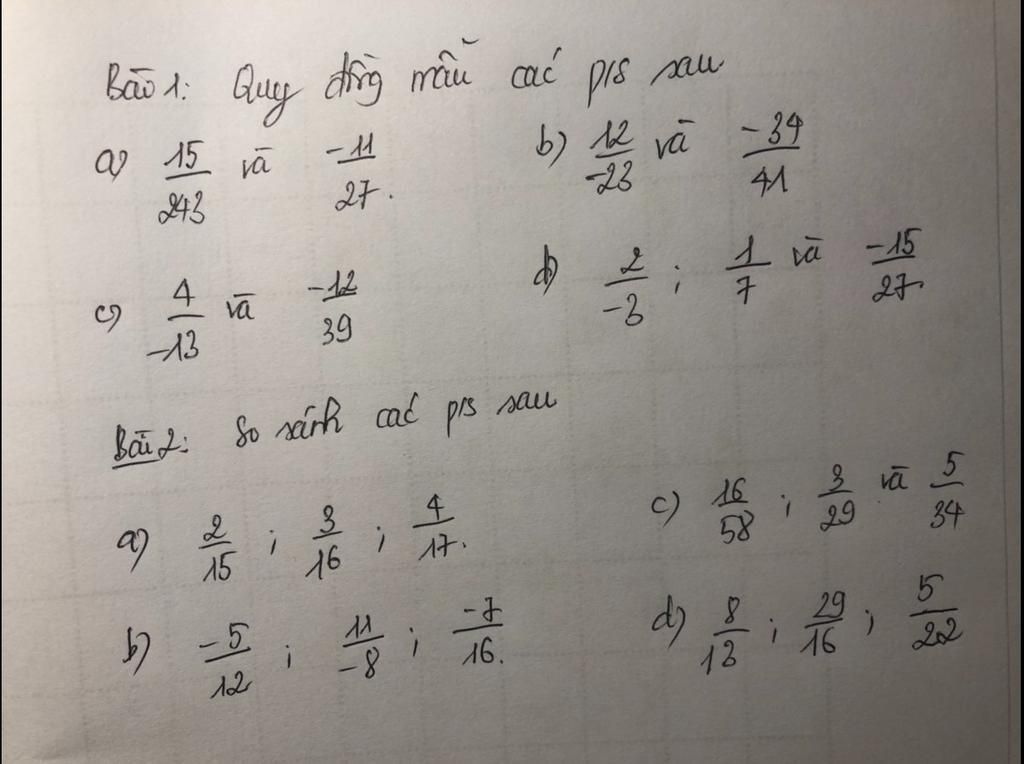 Bài 1: Quy đồng mẫu các p/s sau
a) 15/243 và -11/27. b) 12/-23 và -34/41
c) 4/-13 và -12/39 d) 2/-3 ; 1/7 và -15/27.
Bài 2: So sánh các p/s sau
a) 2/15 ; 3/16 ; 4/17. c) 16/58 ; 3/29 và 5/34
b) -5/12 ; 11/-8 ; -7/16. d) 8/13 ; 29/16 ; 5/22